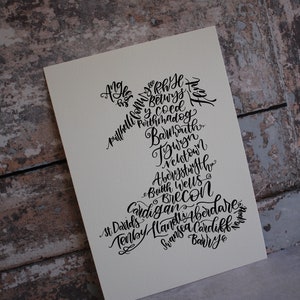 Rhyl
Betws
y coed
Porthmadog
Barmouth
Tywyn
Newtown
Aberystwyth
Builth Wells
BRECON
Cardigan
St Davids
Tenby Llanelli Aberdare
Swansea Cardiff
Barry